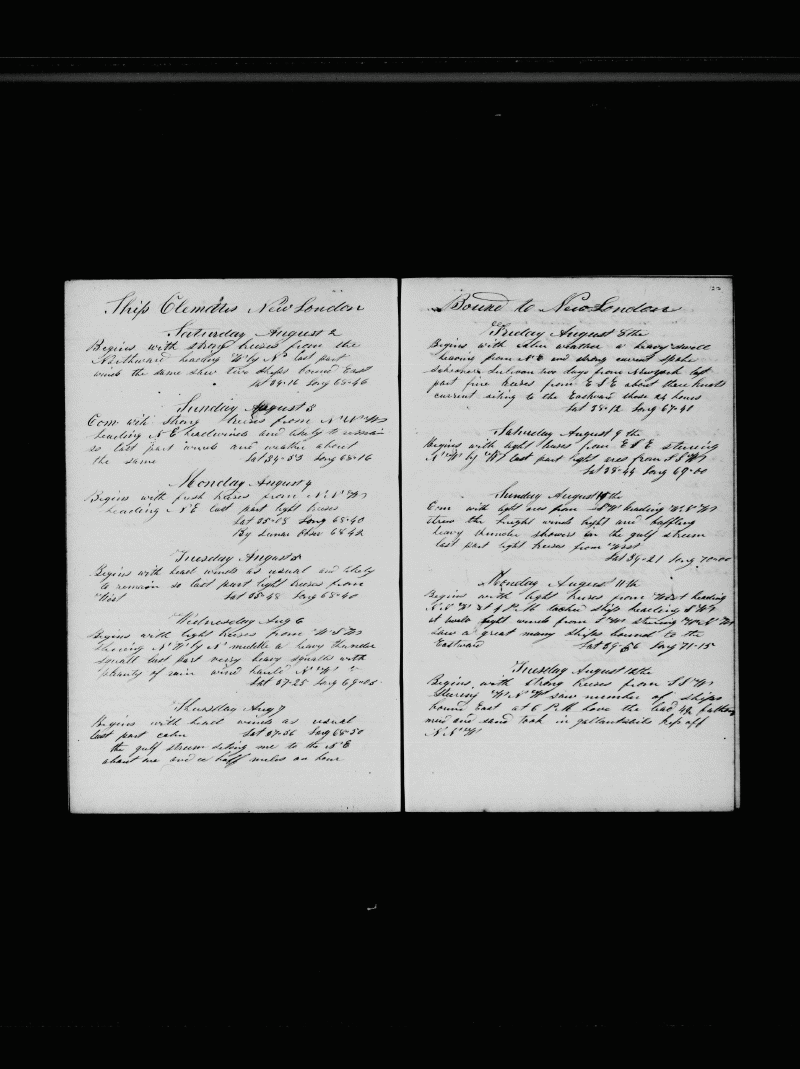 Ship Clematis New London
Saturday August 2
Begins with strong breises from the
Northward heading W by N last part
winds the same saw two ships bound East
Lat 34-16 Long 68-46
Sunday August 3
Com with strong breises from N N W
heading N E headwinds and likely to remain
so last part winds and weather about
the same Lat 34-53 Long 68-16
Monday August 4
Begins with fresh breises from N N W
heading N E last part light breises
Lat 35-08 Long 68-40
By Lunar Obser 68 42
Tuesday August 5
Begins with head winds as usual and likely
to remain so last part light breises from
West Lat 35-48 Long 68-40
Wednesday Aug 6
Begins with light breises from W S W
steering N W by N middle a heavy thunder
squall last part verry heavy squalls with
plenty of rain wind hauld N W
Lat 37-25 Long 69-05
Thursday Aug 7
Begins with head winds as usual
last part calm Lat 37-56 Long 68-50
the gulf stream seting me to the N E
about one and a half miles an hour
Bound to New London
Friday August 8 the
Begins with calm weather a heavy swell
heaving from N E and strong current spoke
Schooner Sulivan two days from Newyork last
part fine breises from E S E about three knots
current seting to the Eastward those 24 hours
Lat 38-12 Long 67-40
Saturday August 9 the
Begins with light breises from E S E steering
N W by W last part light ares from S S W
Lat 38-44 Long 69-00
Sunday August 10 the
Com with light ares from S W heading W N W
threw the knight winds light and baffling
heavy thunder showers in the gulf stream
last part light breises from West
Lat 39-21 Long 70-00
Monday August 11th
Begins with light breises from West heading
N N W at 4 P.M tacked ship heading S W
at twelve light winds from S W stering W N W
saw a great many ships bound to the
Eastward Lat 39-56 Long 71-15
Tuesday August 12 the
Begins with strong breises from S S W
Steering W N W saw number of ships
bound East at 6 P.M have the lead 42 fathoms
mud and sand took in gallantsails kep off
N N W